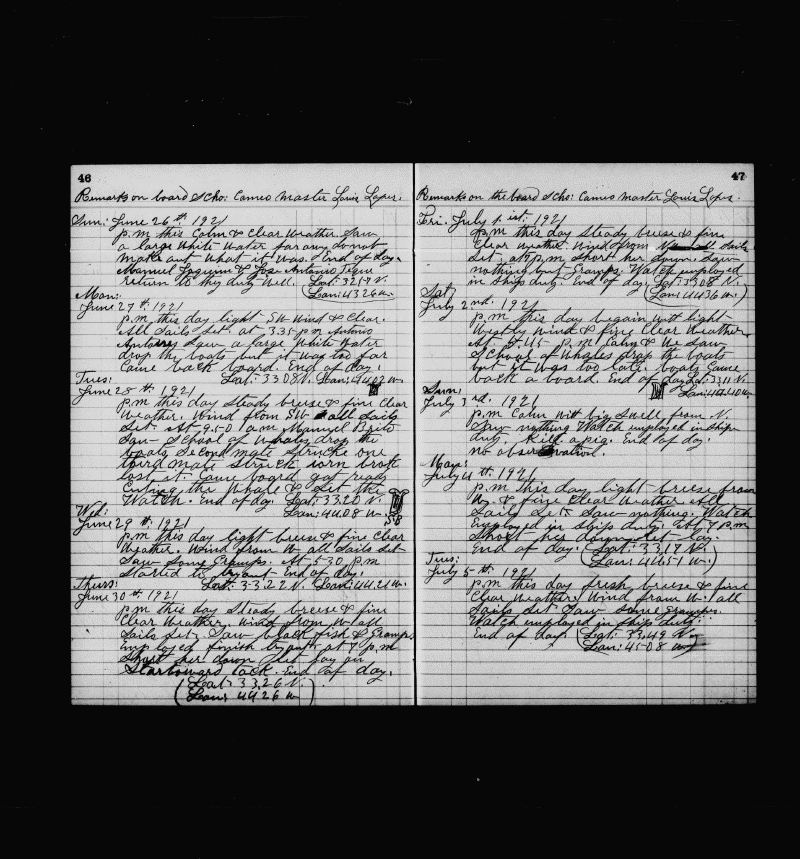 46
Remarks on board Scho: Cameo master Louis Lopes.
Sun: June 26th. 1921
p.m this Calm & Clear Weather. Saw
a large White Water far away do not
make out what it was. End of day.
Manuel Jaquim & Jos. Antonio
return to they duty Well. (Lat: 32.57 N.
(Lon: 43 26 w.
Mon:
June 27th. 1921
p.m this day light SW Wind & Clear.
All Sails Set. at 3.35 p.m Antonio
Saw a large White Water
drop the boats but it was too far
Came back board. End of day.
Tues: Lat: 33 08 N. Lon: 44 02 w.
June 28th. 1921
p.m this day Steady breese & fine Clear
Weather. Wind from SW all Sails
Set. At 9.50 a.m Manuel Brito
Saw School of Whales drop the
boats Second mate Strucke one
third mate Struck iorn brok
lost it. Came board got ready
Cuting the Whale & Set the
Watch. End of day. Lat: 33.20 N.
Wed: Lon: 44.08 w.
SB
June 29th. 1921
p.m this day light breese & fine Clear
Weather. Wind from W all Sails Set
Saw Some Gramps. At 5-30 p.m
Started to tryout End of day.
Thurs: Lat: 33.22 N. Lon: 44.21 w.
June 30th. 1921
p.m this day Steady breese & fine
Clear Weather, Wind from W all
Sails Set. Saw black fish & Gramps
Employed finish tryout at 7 p.m
Short her down Jet Jay on
Starboward tack. End of day.
(Lat: 33.26 N.)
(Lon: 44 26 w)
47
Remarks on the board Scho: Cameo Master Louis Lopes.
Fri. July 1.ist. 1921
p.m this day Steady breese & fine
Clear weather. Wind from all Sails
Set. at 7 p.m Short her down. Saw
nothing but Gramps. Watch employed
in Ships duty. End of day (Lat: 33.08 N.
(Lon: 44 36 w.)
Sat:
July 2nd. 1921
p.m this day begain witt light
Westly Wind & fine Clear Weather.
At 5-45 p.m Calm & We Saw
School of Whales drop the boats
but it was too late. boats Came
back a board. End of day Lat: 33 11 N.
Sun: Lon: 44.40 w
July 3rd. 1921
p.m Calm Witt big Swell from N.
Saw nothing Watch employed in Ships
duty. Kill a pig. End of day.
no observation.
July 4th. 1921
p.m this day light breese from
W. & fine Clear Weather All
Sails Set. Saw nothing. Watch
Employed in Ships duty. At 7 p.m
Short her down let lay.
End of day. (Lat: 33.17 N.)
(Lon: 44.51 w)
Tues:
July 5th. 1921
p.m this day fresh breese & fine
Clear Weather, Wind from W. all
Sails Set Saw Some Gramps.
Watch employed in Ship duty.
End of day (Lat: 33.49 N.
(Lon: 45 08 w)